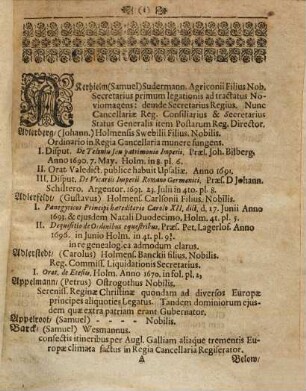 (1)
AKerhielm (Samuel) Sudermann. Agriconii Filius Nob.
Secretarius primum legationis ad tractatus No-
viomagens: deinde Secretarius Regius, Nunc
Cancellariæ Reg. Consiliarius & Secretarius
Status Generalis item Postarum Reg. Director.
Adlerberg/ (Johann.) Holmensis Swebilii Filius. Nobilis.
Ordinario in Regia Cancellaria munere fungent.
I. Disput. De Tabulis seu patrimonio Imperii, Præs. Joh. Bilberg.
Anno 1690. 7. May. Holm. in 8. pl. 6.
II. Orat Valedict. publice habuit Upsaliæ. Anno 1691.
III. Disput. De Vicariis Imperii Romano Germanici, Præs. D Johann.
Schiltero, Argentor. 1693. 23. Julii in 4to. pl. 8.
Adlerfeldt/ (Gustavus) Holmens. Carlsonii Filius. Nobilis.
I. Panegyricus Principi hæreditario Carolo XII, did. d. 17. Junii Anno
1691. & ejusdem Natali Duodecimo, Holm. 4t. pl. 5.
II. Dequisitio de Ordinibus equestribus, Præs. Pet. Lagerlöf. Anno
1696. in Junio Holm. in 4t. pl. 9½.
in re genealog. ei admodum clarus.
Adlerstedt/ (Carolus) Holmens. Bånckii filius. Nobilis.
Reg. Commiss. Liquidationis Secretarius.
I. Orat. de Ense, Holm. Anno 1670. in fol. pl. 2,
Appelmann/ (Petrus) Ostrogothus Nobilis.
Sereniss. Reginæ Christinæ quondam ad diversos Europæ
principes aliquoties Legatus. Tandem dominiorum ejus-
dem quæ extra patriam erant Gubernator.
Appelroot/ (Samuel) - - - - Nobilis.
Barck/ (Samuel) Wesmannus.
confectis itineribus per Angl. Galliam aliasque trementis Eu-
ropæ climata factus in Regia Cancellaria Regiserator.
A
Below/